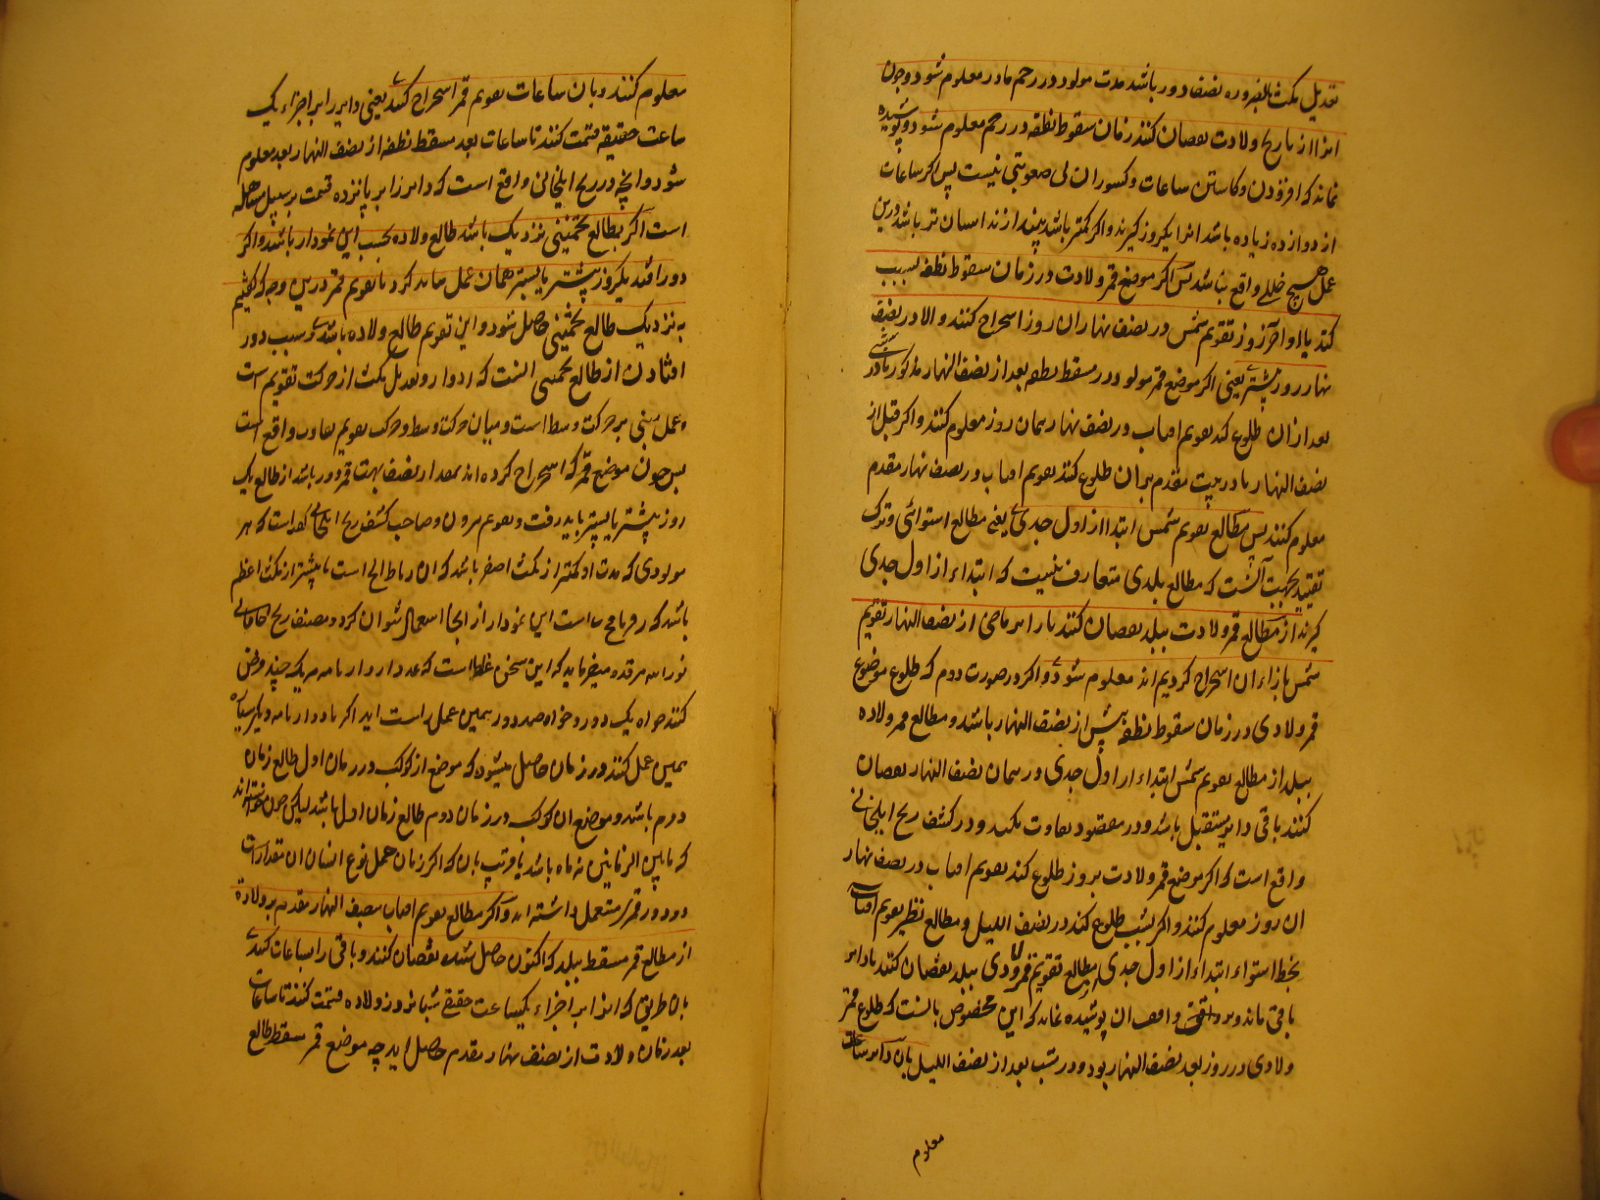 تعدیل مکث بالضروره نصف دور باشد مدت مولود در رحم مادر معلوم شود و چون
انرا از تاریخ ولادت نقصان کنند زمان سقوط نطفه در رحم معلوم شود و پوشیده
نماند که افزودن و کاستن ساعات و کسور ان بی صعوبتی نیست پس اکر ساعات
از دوازده زیاده باشد انرا یکروز کیرند و اکر کمتر باشد بیندازند اسان تر باشد و درین
عمل هیچ خللی واقع نباشد پس اکر موضع قمر ولادت در زمان سقوط نطفه بسبب
تقویم شمس در نصف نهار ان روز استخراج کنند و الا در نصف
نهار روز پیشتر یعنی اکر موضع قمر مولود در مسقط نطفه بعد از نصف النهار مذکور باشد
بعد ازان طلوع کند تقویم افتاب در نصف نهار همان روز معلوم کنند و اکر قبل از
نصف النهار یا در شب مقدم بران طلوع کند تقویم افتاب در نصف نهار مقدم
معلوم کنند پس مطالع تقویم شمس ابتدا از اول جدی یعنی مطالع استوائی و ترک
تقیید بجهت آنست که مطالع بلدی متعارف نیست که ابتداء از اول جدی
کیرند از مطالع قمر ولادت ببلد نقصان کنند تا دایر ماضی از نصف النهار تقویم
شمس بازاء ان استخراج کردیم اند معلوم شود و اکر در صورت دوم که طلوع موضع
قمر ولادی در زمان سقوط نطفه پیش از نصف النهار باشد و مطالع قمر ولاده
ببلد از مطالع تقویم شمس ابتداء از اول جدی در همان نصف النهار نقصان
کنند باقی دایر مستقبل باشد و در مقصود تفاوت نکند و در کشف زیج ایلخانی
واقع است که اکر موضع قمر ولادت بروز طلوع کند تقویم افتاب در نصف نهار
ان روز معلوم کنند و اکر بشب طلوع کند در نصف اللیل و مطالع نظیر تقویم افتاب
بخط استواء ابتداء از اول جدی از مطالع تقویم قمر ولادی ببلد نقصان کنند تا دایر
باقی ماند و بر واقف ان پوشیده نماند که این مخصوص بانست که طلوع قمر
ولادی در روز بعد نصف النهار بود و در شب بعد از نصف اللیل بان دایر ساعات
معلوم
معلوم کنند و بان ساعات تقویم قمر استخراج کنند یعنی دایر را بر اجزاء یک
ساعت حقیقه قسمت کنند تا ساعات بعد مسقط نطفه از نصف النهار بعد معلوم
شود و انچه در زیج ایلخانی واقع است که دایر را بر پانزده قسمت بر سبیل مساهله
است اکر بطالع تخمینی نزدیک باشد طالع ولاده بحسب این نمودار باشد و اکر
دور افتد یکروز پیشتر یا پستر همان عمل باید کرد تا تقویم قمر درین وجه که کفتیم
به نزدیک طالع تخمینی حاصل شود و این تقویم طالع ولاده باشد و سبب دور
افتادن از طالع تخمینی انست که ادوار و تعدیل مکث از حرکت تقویم است
و عمل مبنی بر حرکت وسط است و میان حرکت وسط و حرکت تقویم تفاوت واقع است
پس چون موضع قمر که استخراج کرده اند بمقدار نصف بهت قمر دور باشد از طالع یک
روز پیشتر یا پستر باید رفت و صاحب کشف زیج ایلخانی کفته است که هر
مولودی که مدت او کمتر از مکث اصغر باشد که ان است یا بیشتر از مکث اعظم
باشد که است این نمودار از انجا استعمال نتوان کرد و مصنف زیج خاقانی
نور الله مرقده میفرماید که این سخن غلط است که عدد ادوار تامه هر یک چند فرض
کنند خواه یک دور و خواه صد دور همین عمل راست اید اکر با ادوار تامه دیکر سیاره
همین عمل کنند در زمان حاصل میشود که موضع از کوکب در زمان اول طالع زمان
دوم باشد و موضع ان کوکب در زمان دوم طالع زمان اول باشد لیکن چون
که مابین الزمانین نه ماه باشد یا قریب بان که اکثر زمان حمل نوع انسان ان مقدار است
درو دور قمر مستعمل داشته اند و اکر مطالع تقویم افتاب بنصف النهار مقدم بر ولاده
از مطالع قمر مسقط ببلد که اکنون حاصل شده نقصان کنند و باقی را بساعات کنند
بان طریق که انرا بر اجزاء یکساعت حقیقی شبانروز ولاده قسمت کنند تا ساعات
بعد زمان ولادت از نصف نهار مقدم حاصل اید چه موضع قمر مسقط طالع